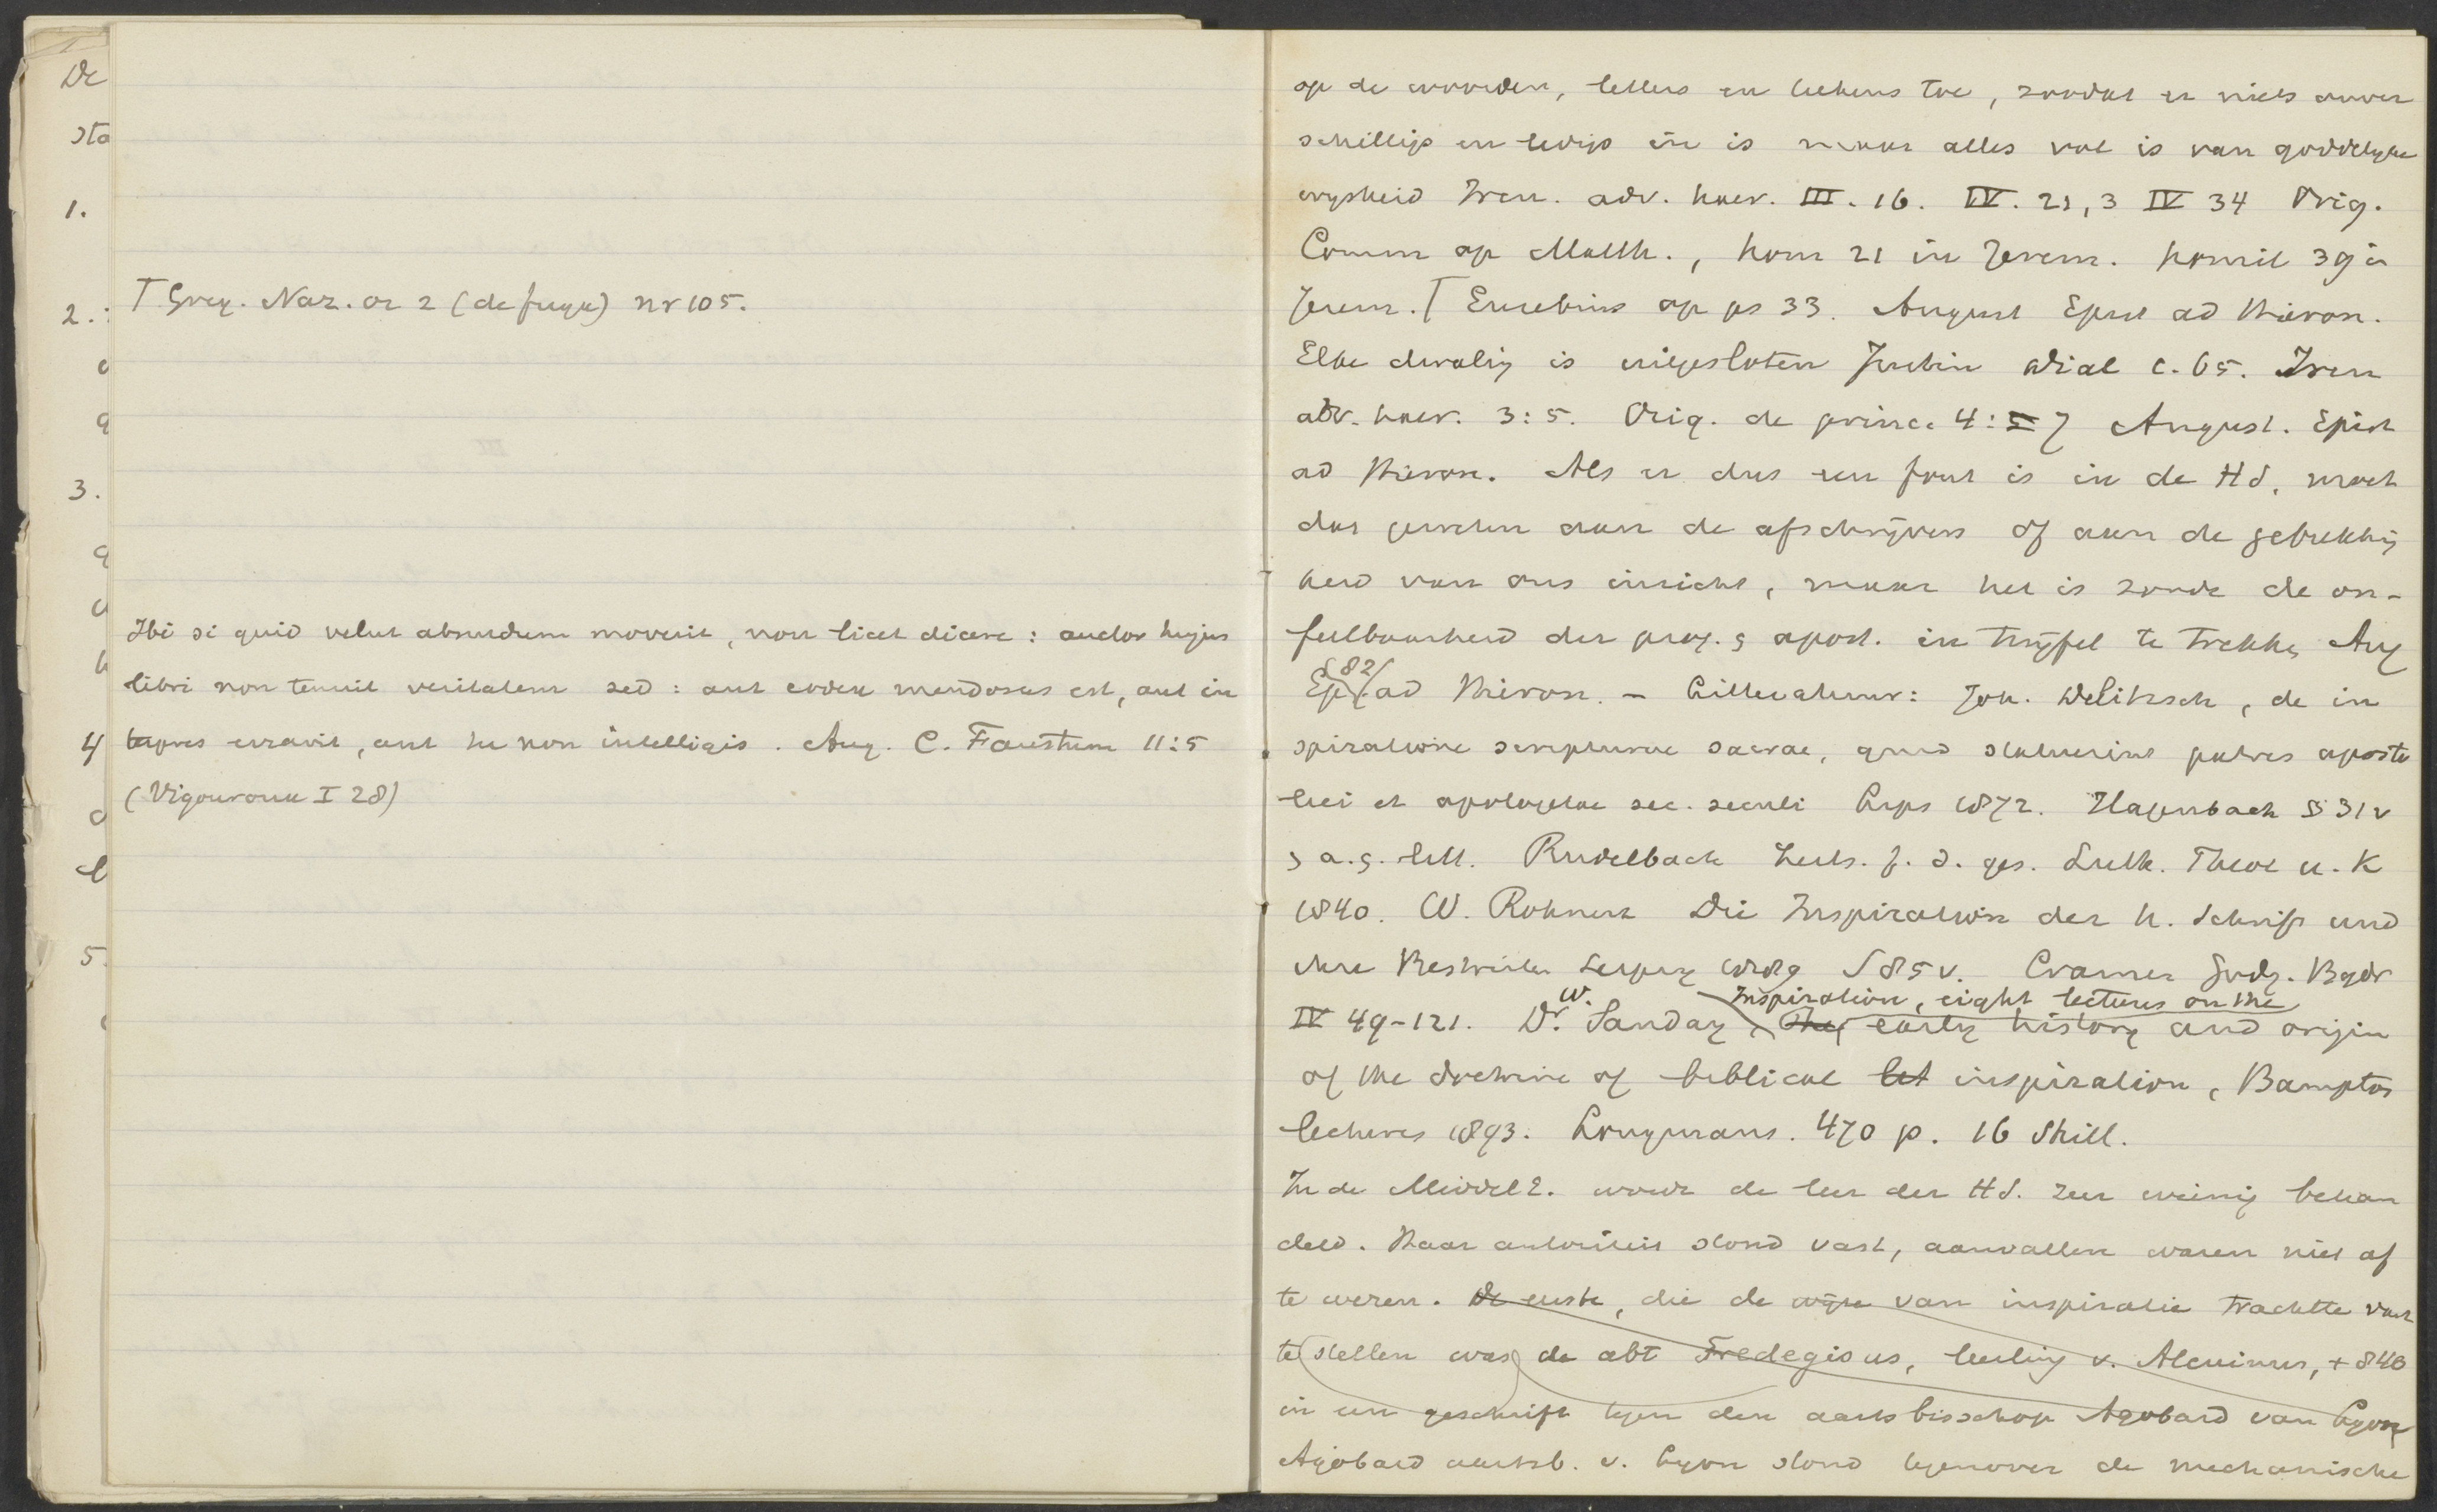 De
sta
1.
2.
3.
4
5.
Γ Greg. Naz. or 2 (de fuga) nr 105.
Ibi si quid velut absurdum moverit, non licet dicere: auctor hujus
libri non tenuit veritatem sed: aut codex mendosus est, aut in
terpres erravit, aut tu non intelligis. Aug. C. Faustum 11:5
(Vigouroux I 28)
op de woorden, letters en teekens toe, zoodat er niets onver
schilligs en ledigs in is maar alles vol is van goddelyke
wysheid Iren. adv. haer. III. 16. IV. 21,3 IV 34 Orig.
Comm op Matth., hom 21 in Jerem. homil 39 in
Jerem. Γ Eusebius op ps 33. August Epist ad Hieron.
Elke dwaling is uitgesloten Justin Dial c. 65. Iren
adv. haer. 3:5. Orig. de princ. 4:7 August. Epist
ad Hieron. Als er dus een fout is in de HS. moet
dat geweten aan de afschrijvers of aan de gebrekkig
heid van ons inzicht, maar het is zonde de on-
feilbaarheid der prof. & apost. in twijfel te trekken Aug
Ep. 82 ad Hieron. - Litteratuur: Joh. Delitzsch, de in
spiratione scripturae sacrae, quid statuerint patres aposto
lici et apologetae sec. seculi Lips 1872. Hagenbach § 31 v
& a. g. litt. Rudelbach Zeits. f. d. ges. Luth. Theol u. K
1840. W. Rohnert Die Inspiration der h. Schrift und
ihre Bestreiter Leipzig 1889 S 85 v. Cramer Godg. Bydr
IV 49-121. Dr. W. Sanday, The Inspiration, eight lectures on the early history and origin
of the doctrine of biblical let inspiration, Bampton
lectures 1893. Longmans. 470 p. 16 Shill.
In de Middel E. werd de leer der HS. zeer weinig behan
deld. Haar autoriteit stond vast, aanvallen waren niet af
te weren. De eerste, die de wijze van inspiratie trachtte vast
te stellen was de abt Fredegisus, leerling v. Alcuinus, + 840
in een geschrift tegen den aartsbisschop Agobard van Lyon
Agobard aartsb. v. Lyon stond tegenover de mechanische